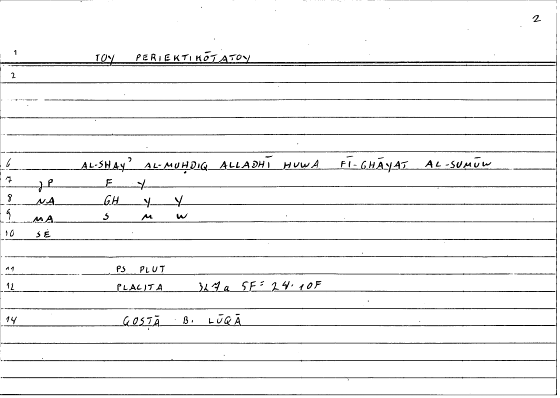 2
1 TOY PERIEKTIKŌTATOY
2
6 AL-SHAYʾ AL-MUḤDIQ ALLADHĪ HUWA FĪ-GHĀYAT AL-SUMŪW
7 JP F Y
8 NA GH Y Y
9 MA S M W
10 SE
11 PS PLUT
12 PLACITA 327a 5F = 24.10F
14 QOSṬĀ B. LŪQĀ